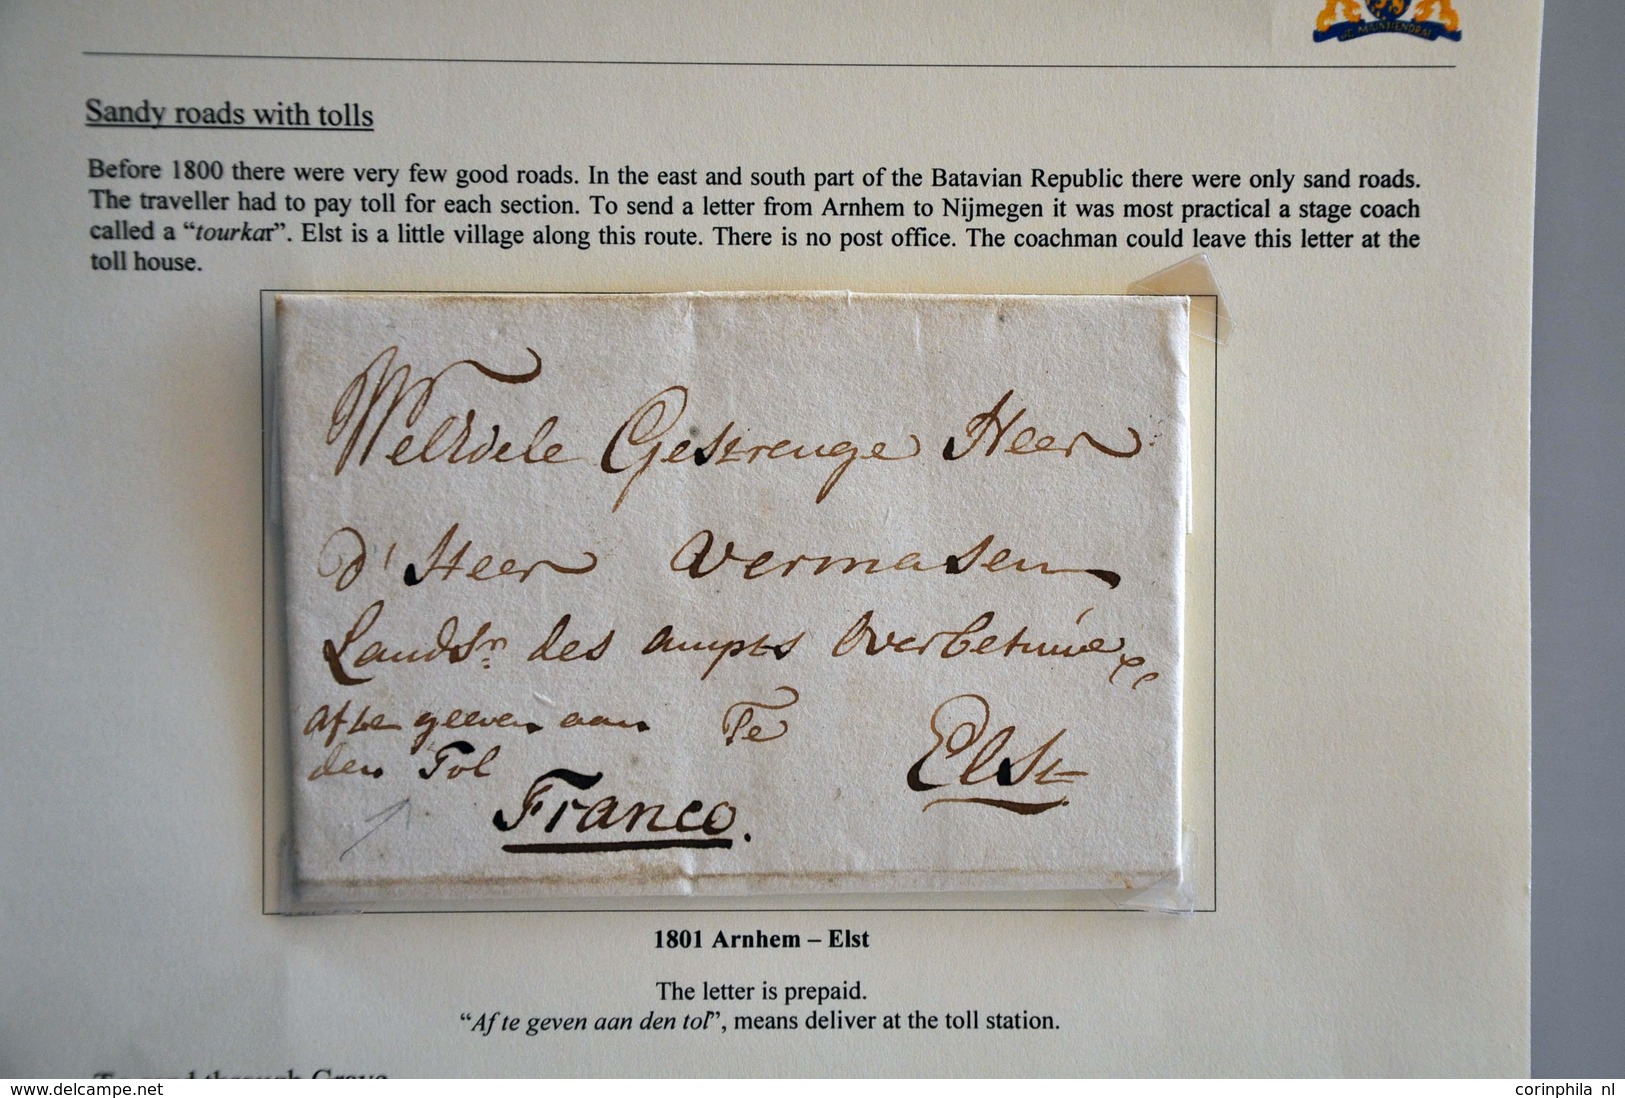 JE MAINTIENDRAI
Sandy roads with tolls
Before 1800 there were very few good roads. In the east and south part of the Batavian Republic there were only sand roads.
The traveller had to pay toll for each section. To send a letter from Arnhem to Nijmegen it was most practical a stage coach
called a “tourkar”. Elst is a little village along this route. There is no post office. The coachman could leave this letter at the
toll house.
WelEdele Gestrenge Heer
d' Heer Vermasen
Landsr. des ampts Overbetuwe
af te geeven aan Te Elst
den Tol
Franco.
1801 Arnhem – Elst
The letter is prepaid.
“Af te geven aan den tol”, means deliver at the toll station.
through Grave
welcome to our website
corinphila nl